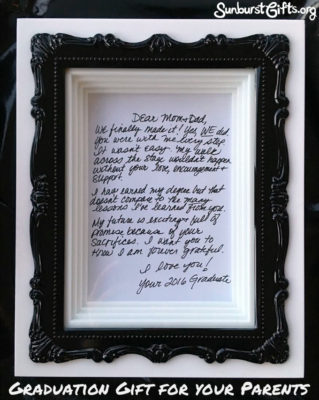 SunburstGifts.org
Dear Mom & Dad,
We finally made it! Yes, WE did.
You were with me every step.
It wasn't easy. My walk
across the stage wouldn't happen
without your love, encouragement &
support.
I have earned my degree but that
doesn't compare to the many
lessons I've learned from you.
My future is exciting & full of
promise because of your
sacrifices. I want you to
know I am forever grateful.
I love you!
Your 2016 Graduate
GRADUATION GIFT FOR YOUR PARENTS